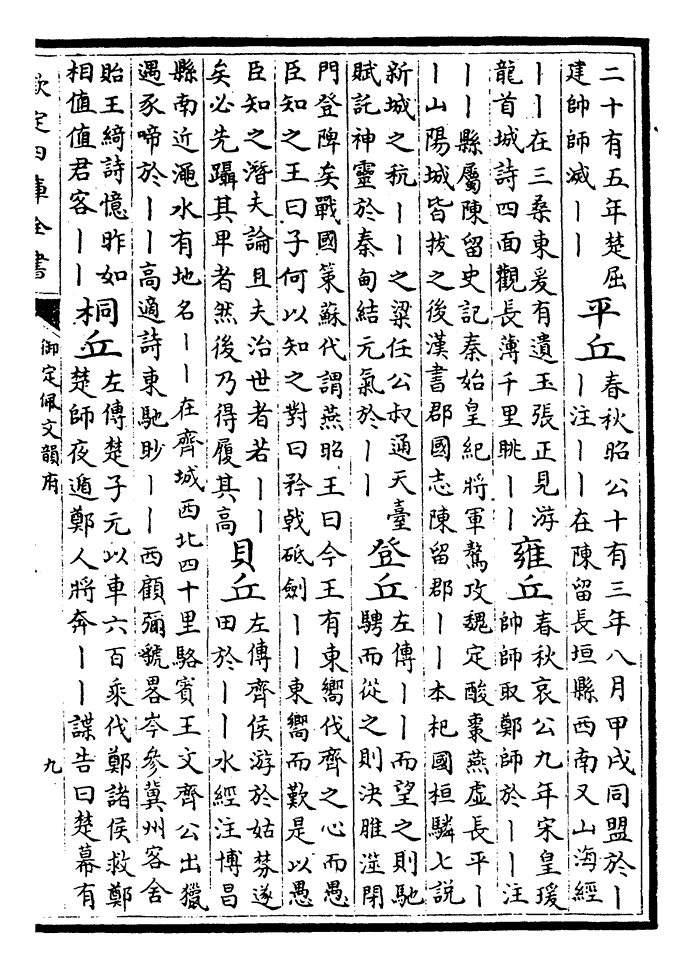 二十有五年楚屈
建帥師滅丨丨
平丘
春秋昭公十有三年八月甲戌同盟於丨
丨注丨丨在陳留長垣縣西南又山海經
丨丨在三桑東爰有遺玉張正見游
龍首城詩四面觀長薄千里眺丨丨
雍丘
春秋哀公九年宋皇瑗
帥師取鄭師於丨丨注
丨丨縣屬陳留史記秦始皇紀將軍驁攻魏定酸棗燕虛長平丨
丨山陽城皆拔之後漢書郡國志陳留郡丨丨本杞國桓驎七説
新城之秔丨丨之粱任公叔通天臺
賦託神靈於秦甸結元氣於丨丨
登丘
左傳丨丨而望之則馳
騁而從之則決睢澨閉
門登陴矣戰國策蘇代謂燕昭王曰今王有東嚮伐齊之心而愚
臣知之王曰子何以知之對曰矜戟砥劍丨丨東嚮而歎是以愚
臣知之潛夫論且夫治世者若丨丨
矣必先躡其卑者然後乃得履其高
貝丘
左傳齊侯游於姑棼遂
田於丨丨水經注博昌
縣南近澠水有地名丨丨在齊城西北四十里駱賓王文齊公出獵
遇豕啼於丨丨高適詩東馳眇丨丨西顧彌虢畧岑參冀州客舍
貽王綺詩憶昨如
相值值君客丨丨
桐丘
左傳楚子元以車六百乘伐鄭諸侯救鄭
楚師夜遁鄭人將奔丨丨諜告曰楚幕有
欽定四庫全書
御定佩文韻府
九